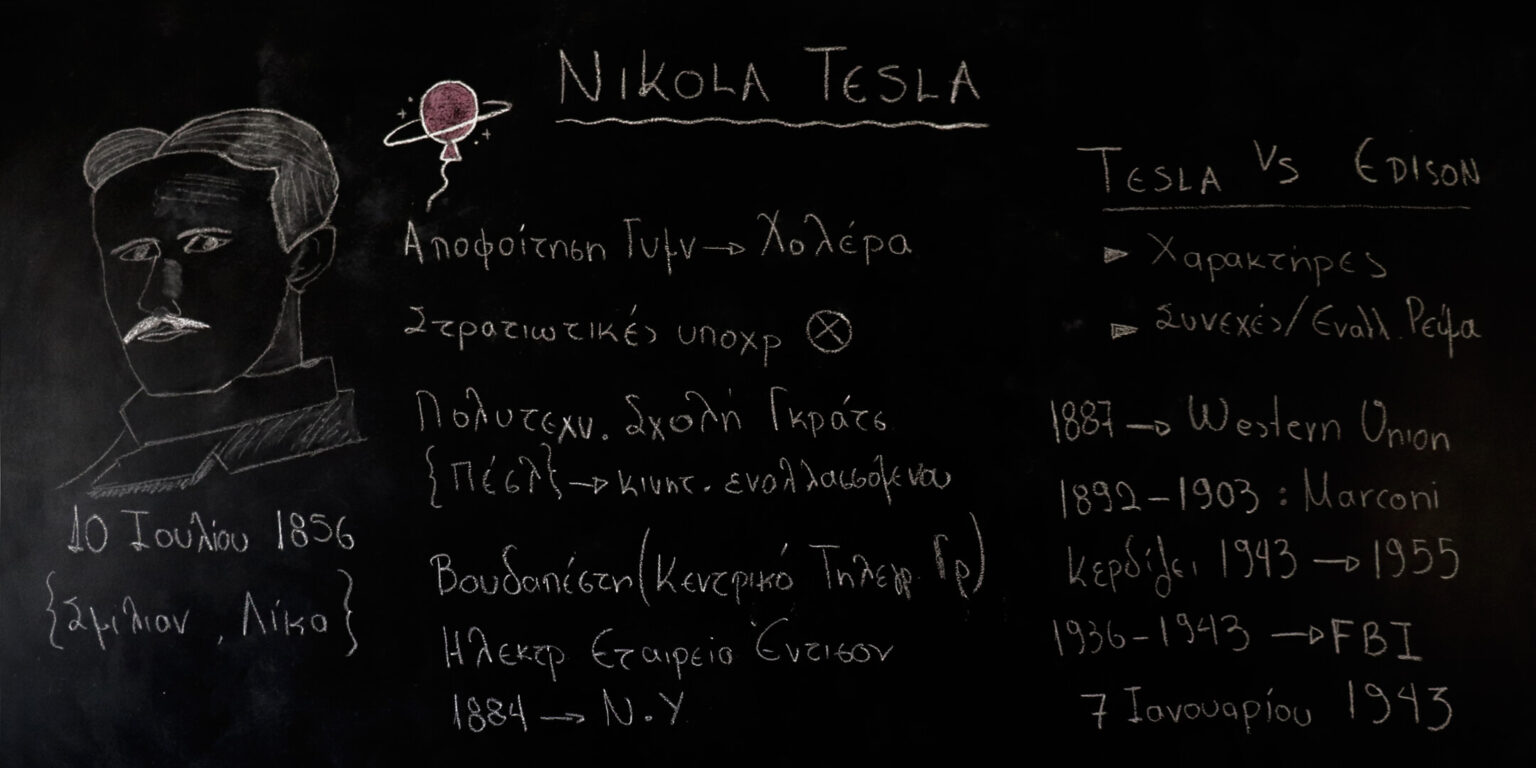 NIKOLA TESLA
10 Ιουλίου 1856
{Σμιλιαν, Λίκα}
Αποφοίτηση Γυμν → Χολέρα
Στρατιωτικές υποχρ ⊗
Πολυτεχν. Σχολή Γκράτς
{Πέσλ} → κινητ. εναλλασσόμενου
Βουδαπέστη (Κεντρικό Τηλεγρ. Γρ)
Ηλεκτρ. Εταιρεία Έντισον
1884 → Ν.Υ
TESLA VS EDISON
► Χαρακτήρες
► Συνεχές/Εναλλ. Ρεύμα
1887 → Western Union
1892-1903 : Marconi
κερδίζει 1943 → 1955
1936-1943 → FBI
7 Ιανουαρίου 1943